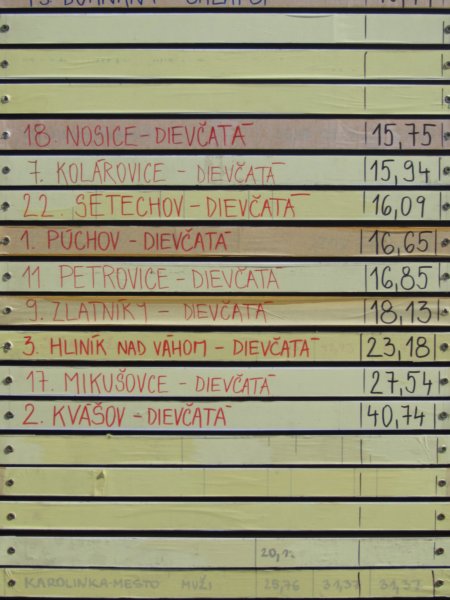 18. NOSICE - DIEVČATÁ 15,75
7. KOLÁROVICE - DIEVČATÁ 15,94
22. SETECHOV - DIEVČATÁ 16,09
1. PÚCHOV - DIEVČATÁ 16,65
11 PETROVICE - DIEVČATÁ 16,85
9. ZLATNÍKY - DIEVČATÁ 18,13
3. HLINÍK NAD VÁHOM - DIEVČATÁ 23,18
17. MIKUŠOVCE - DIEVČATÁ 27,54
2. KVÁŠOV - DIEVČATÁ 40,74
KAROLINKA-MESTO MUŽI 29,76 31,37 31,37